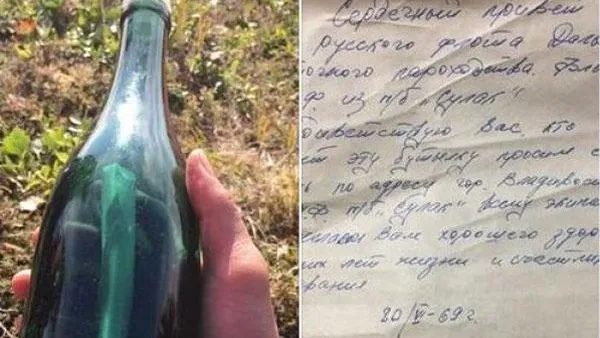 Сердечный привет
русского флота Даль
точного пароходства. Вла
ф из п/б "Сулак"
Вас, кто
ет эту бутылку просим с
по адресу гор. Владивос
ф п/б "Сулак" всему экипа
Вам хорошего здор
их лет жизни и счастли
вания
20/VI-69г.